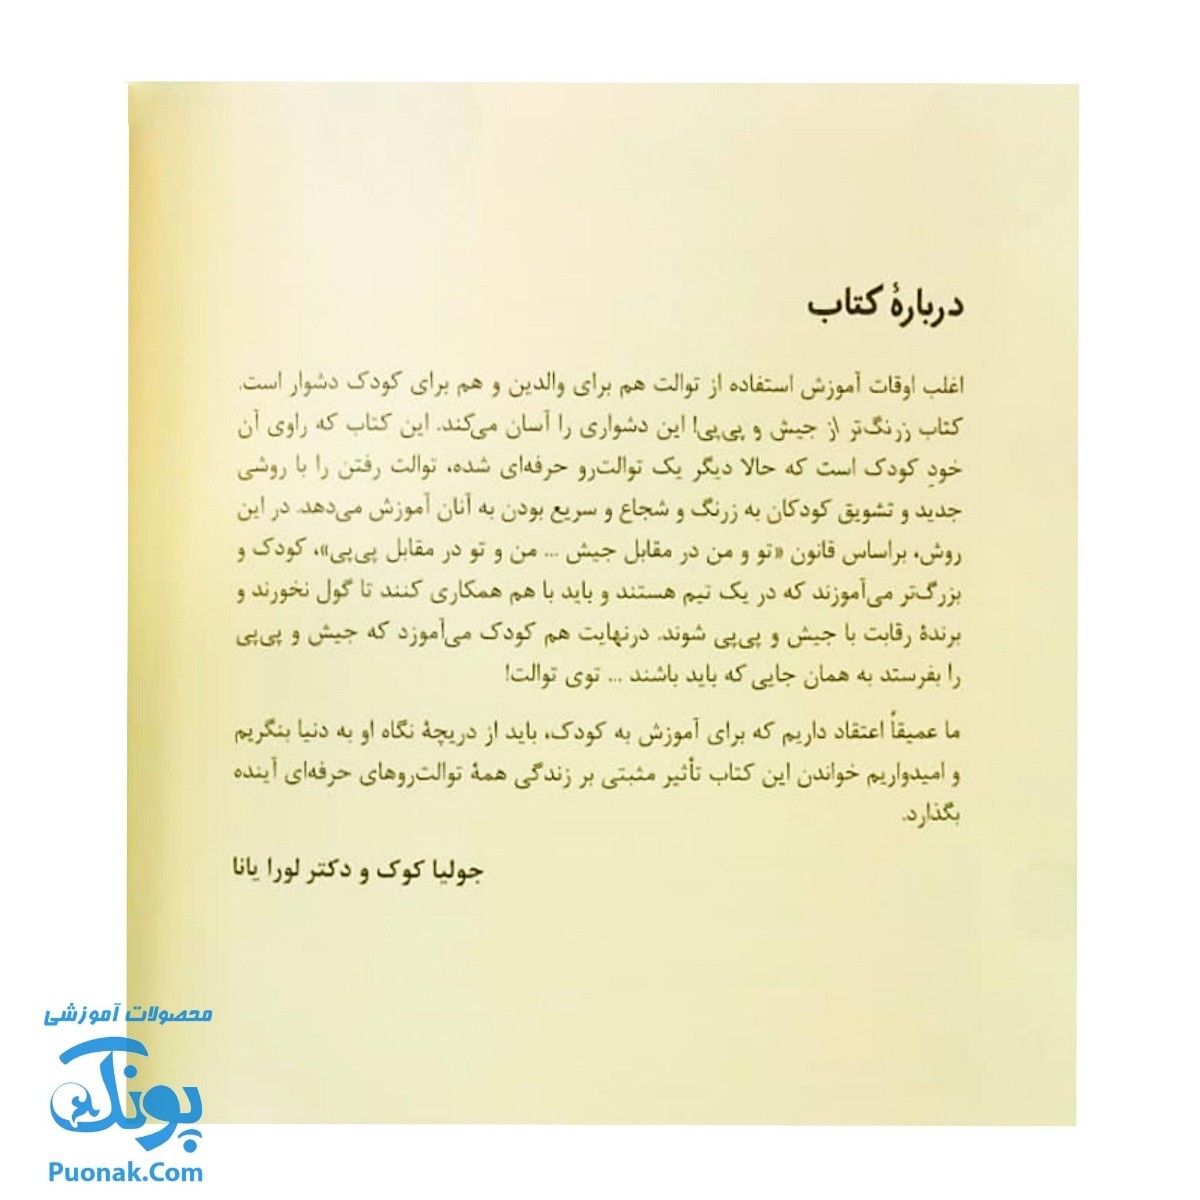 دربارهٔ کتاب
اغلب اوقات آموزش استفاده از توالت هم برای والدین و هم برای کودک دشوار است.
کتاب زرنگ‌تر از جیش و پی‌پی! این دشواری را آسان می‌کند. این کتاب که راوی آن
خودِ کودک است که حالا دیگر یک توالت‌رو حرفه‌ای شده، توالت رفتن را با روشی
جدید و تشویق کودکان به زرنگ و شجاع و سریع بودن به آنان آموزش می‌دهد. در این
روش، براساس قانون «تو و من در مقابل جیش ... من و تو در مقابل پی‌پی»، کودک و
بزرگ‌تر می‌آموزند که در یک تیم هستند و باید با هم همکاری کنند تا گول نخورند و
برندهٔ رقابت با جیش و پی‌پی شوند. درنهایت هم کودک می‌آموزد که جیش و پی‌پی
را بفرستد به همان جایی که باید باشند ... توی توالت!
ما عمیقاً اعتقاد داریم که برای آموزش به کودک، باید از دریچهٔ نگاه او به دنیا بنگریم
و امیدواریم خواندن این کتاب تأثیر مثبتی بر زندگی همهٔ توالت‌روهای حرفه‌ای آینده
بگذارد.
جولیا کوک و دکتر لورا یانا
محصولات آموزشی
پونک
Puonak.Com